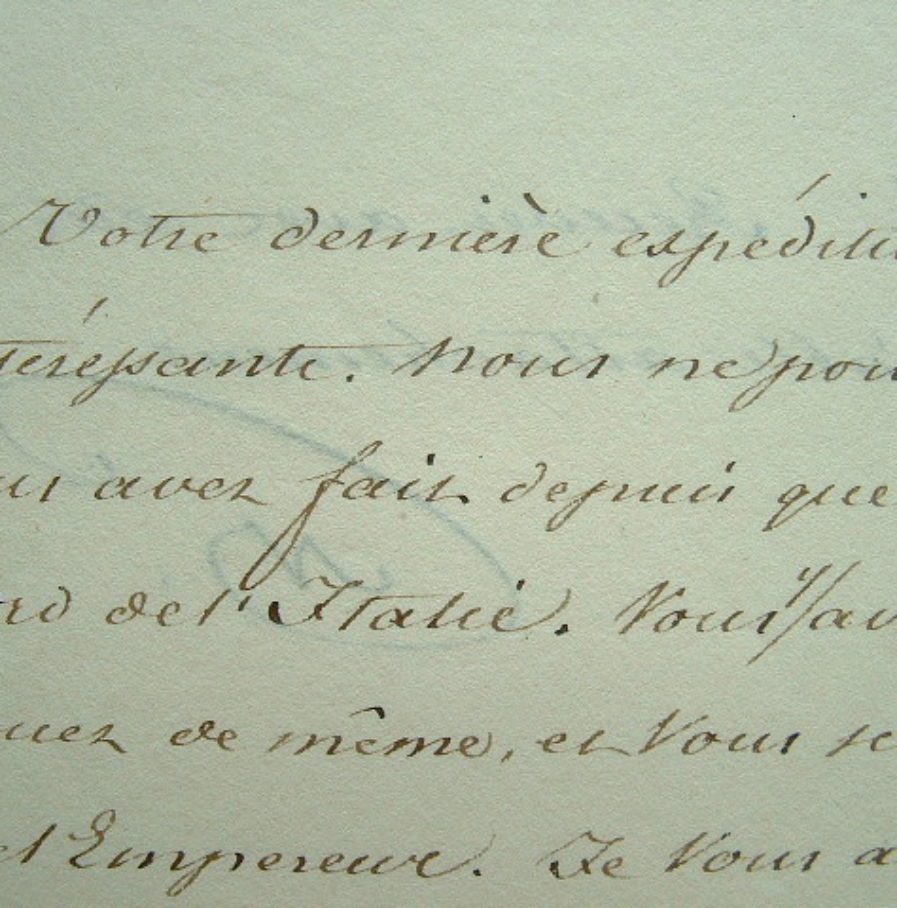 Votre dernière expéditi
téressante. Nous ne pou
us avez fait depuis que
rd de l'Italie. Vous y av
uez de même, et Vous se
el'Empereur. Je Vous a